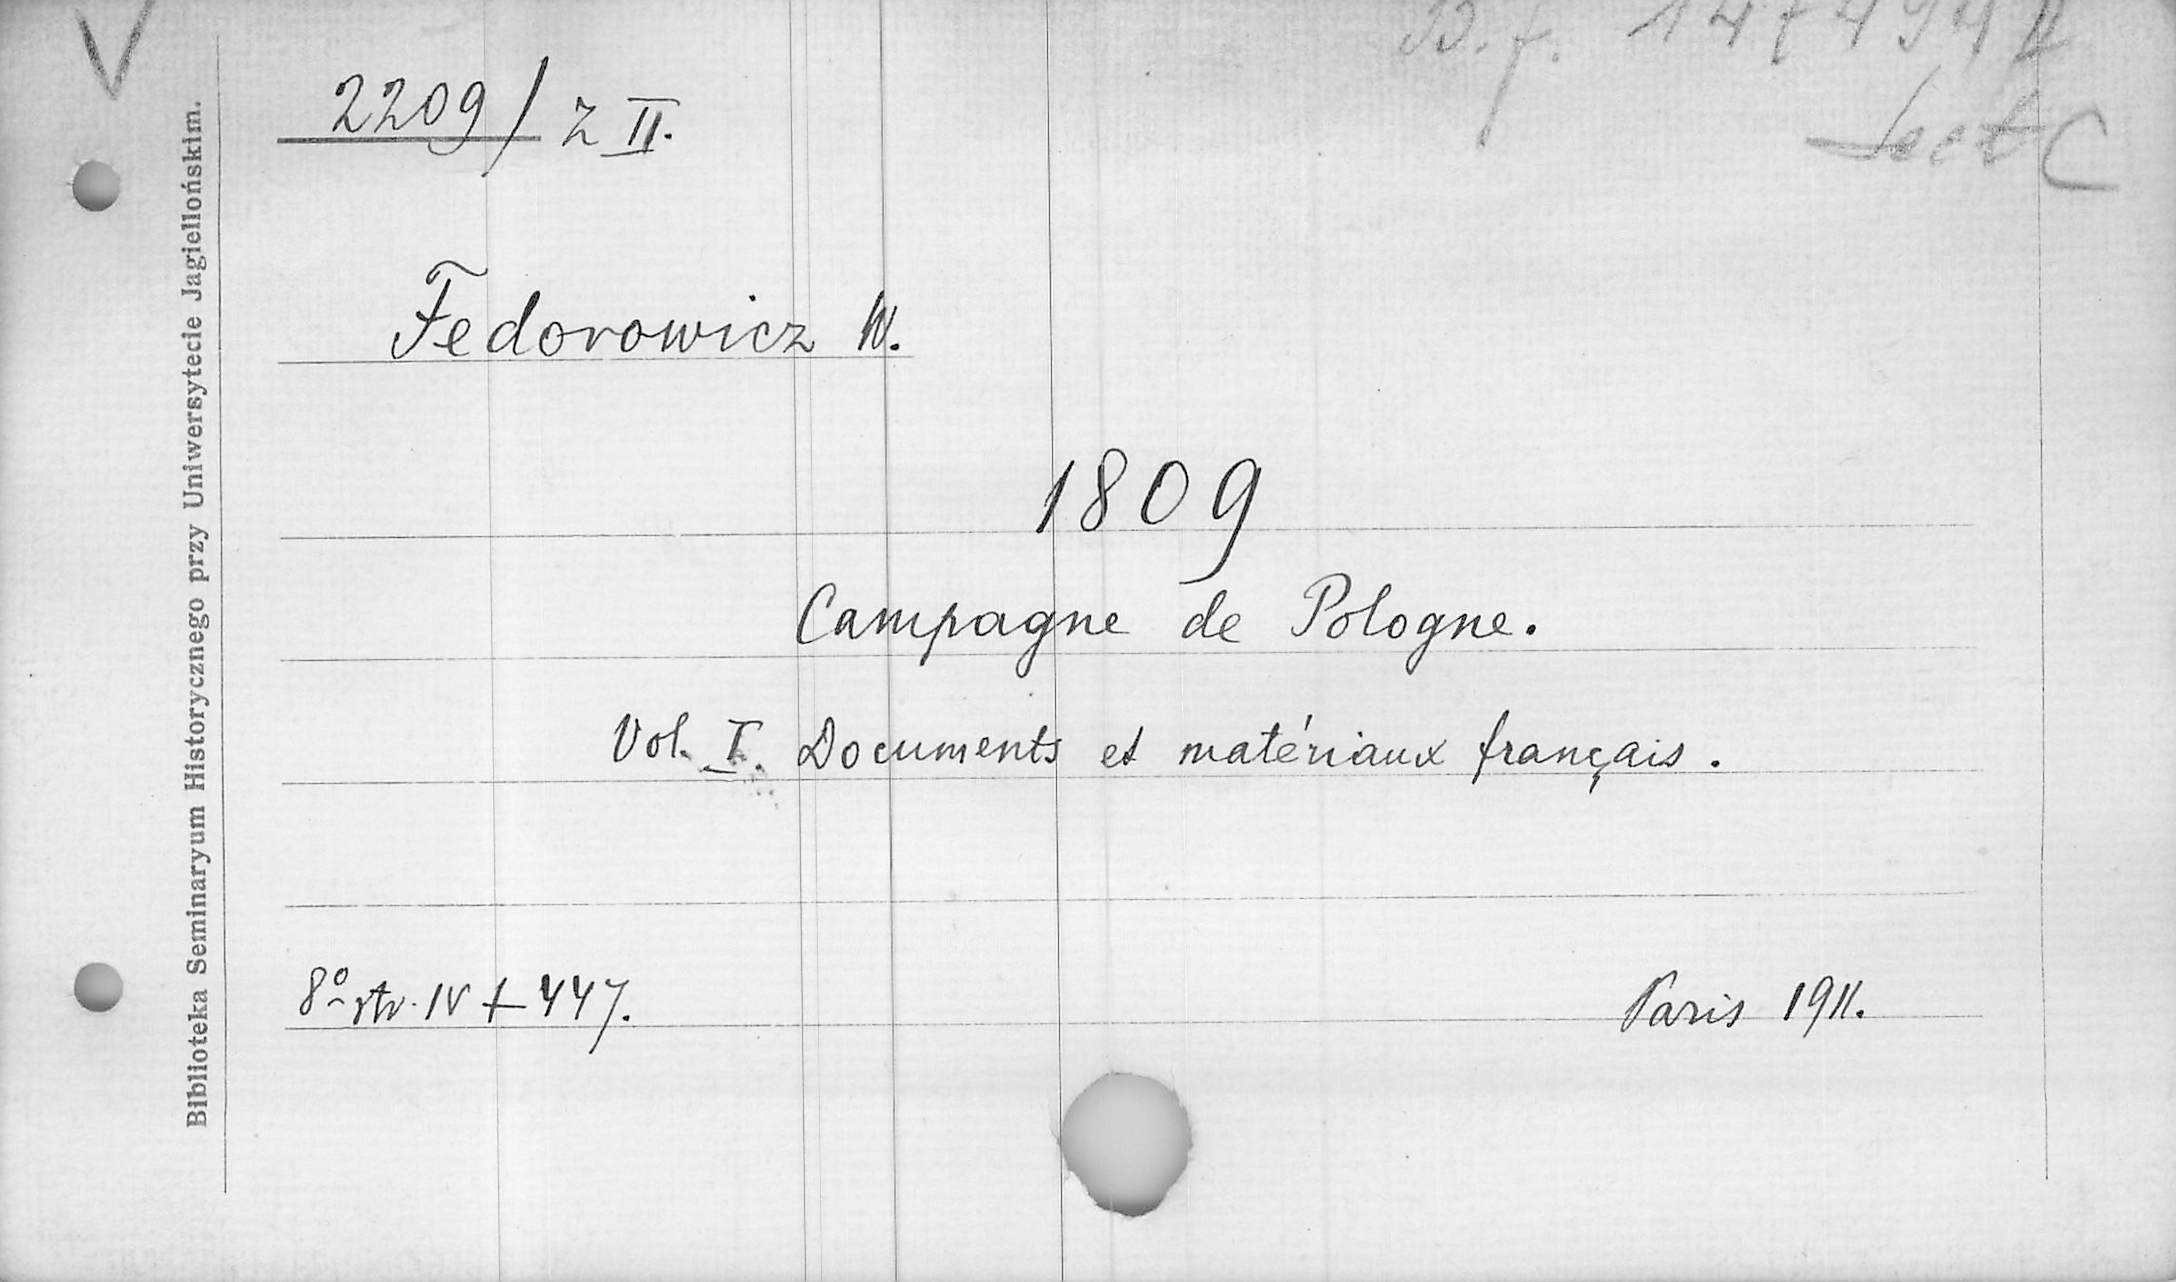 2209/ Z II.
Fedorowicz W.
1809
Campagne de Pologne.
Vol. I. Documents et matériaux français.
8° str. IV + 447.
Paris 1911.
Biblioteka Seminaryum Historycznego przy Uniwersytecie Jagiellońskim.